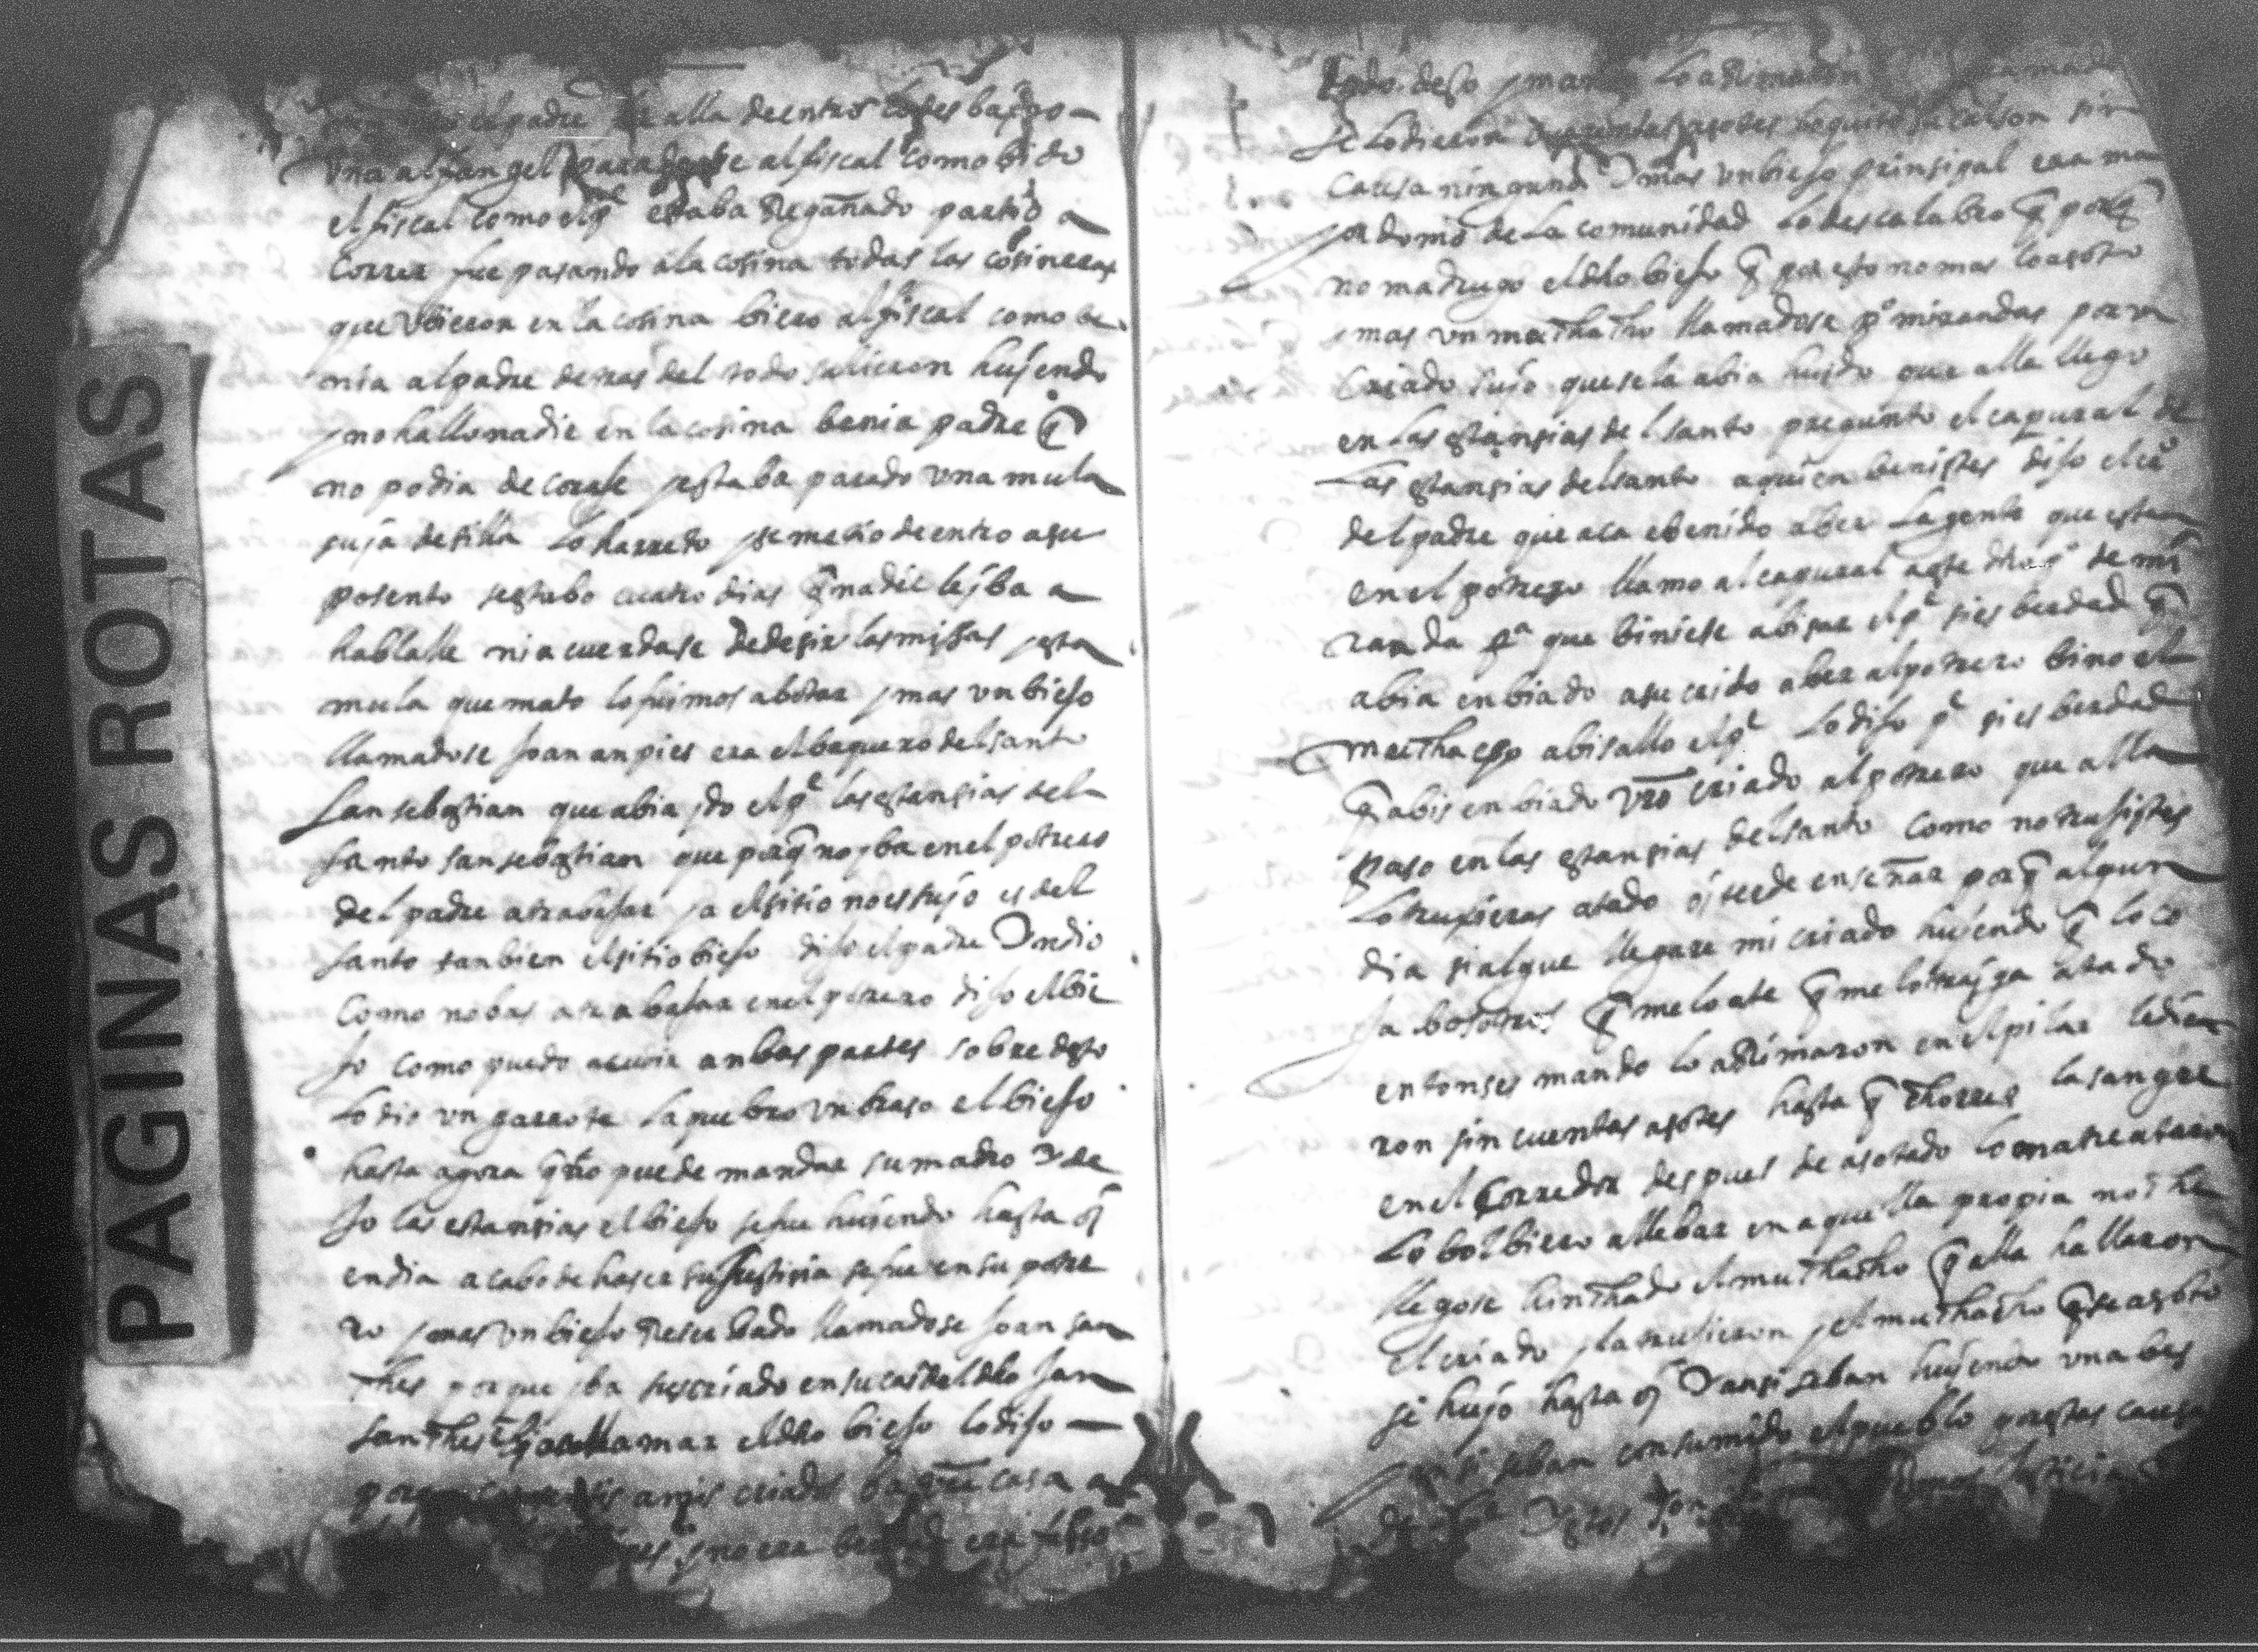 PAGINAS ROTAS
el padre alla de entro los bajo
una alfangel para dalle al fiscal como bido
el fiscal como el pe estaba Regañado partio a
correr fue pasando a la cosina todas las cosineras
que ubieron en la cosina biero al fiscal como be
nia al padre detras del todo salieron huiendo
y no hallo nadie en la cosina benia padre q
no podia de coraje y estaba parado una mula
suja de silla lo harreto y se metio de entro a su
posento y estubo cuatro dias q nadie le yba a
hablalle ni a cuerdase de desir las missas y esta
mula que mato lo fuimos a botar y mas un biejo
llamadose Joan anpies era el baquero del santo
San sebastian que abia ydo el pe las estansias del
santo san sebastian que porq no yba en el potrero
del padre a trabajar ya el sitio no es sujo es del
santo tanbien el sitio biejo dijo el padre Yndio
como no bas a trabajar en el potrero dijo el bie
jo como puedo acudir anbas partes sobre desto
lo dio un garrote la quebro un braso el biejo
hasta agora q no puede mandar su mano y de
jo las estansias el biejo se fue huiendo hasta oy
en dia acabo de haser su Justisia se fue en su potre
ro y mas un biejo Reserbado llamadose Joan san
ches porque yba sus criado en su casa del dho Jan
sanches llamar el dho biejo lo dijo
mis criados casa
y no era berdad era falso
todo deso y mando lo arrimaron
se lo dieron asotes calson sin
causa ninguna Y mas un biejo prinsipal era ma
yordomo de la comunidad lo descalabro q porq
no madrugo el dho biejo q por esto no mas lo asoto
y mas un muchacho llamadose po mirandas por un
criado sujo que se la abia huido que alla llego
en las estansias del santo pregunto el capural de
las estansias del santo a quien benistes dijo el cro
del padre que aca e benido a ber la gente que esta
en el potrero llamo al capural a este dho po de mi
randa pa que biniese abisar el pe si es berdad q
abia enbiado a su criado a ber al potrero bino el
muchacho abisallo el pe lo dijo pe si es berdad
q abis enbiado vro criado al potrero que alla
paso en las estansias del santo como no trujistes
lo trujieras atado oy se de enseñar porq algun
dia si al que llegare mi criado huiendo q lo co
ja bosotros q me lo ate q me lo trayga atado
entonses mando lo arrimaron en el pilar le die
ron sincuentas asotes hasta q chorrer la sangre
en el corredor despues de asotado lo matrataron
lo bolbiero a llebar en aquella propia noche
llegose hinchado el muchacho q alla hallaron
el criado y la trujieron y el muchacho q se asoto
se hujo hasta oy Y ansi se ban huiendo una bes
y si se ban consumido el pueblo por estas causa